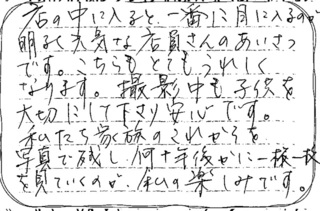 店の中に入ると、一番に目に入るのが
明るく元気な店員さんのあいさつ
です。こちらもとてもうれしく
なります。撮影中も子供を
大切にして下さり安心です。
私たち家族のこれからを
写真で残し何十年後かに一枚一枚
を見ていくのが、私の楽しみです。